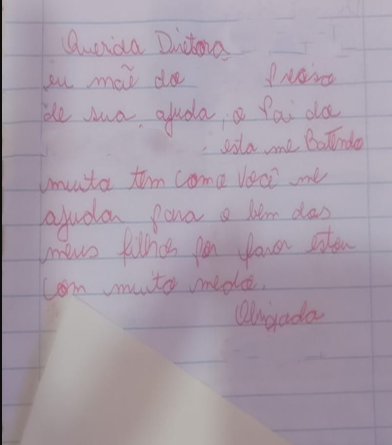 Querida Diretora
eu mãe do Preciso
de sua ajuda, o Pai da
esta me Batendo
muito tem como você me
ajudar para o bem dos
meus filhos por favor estou
com muito medo.
Obrigada